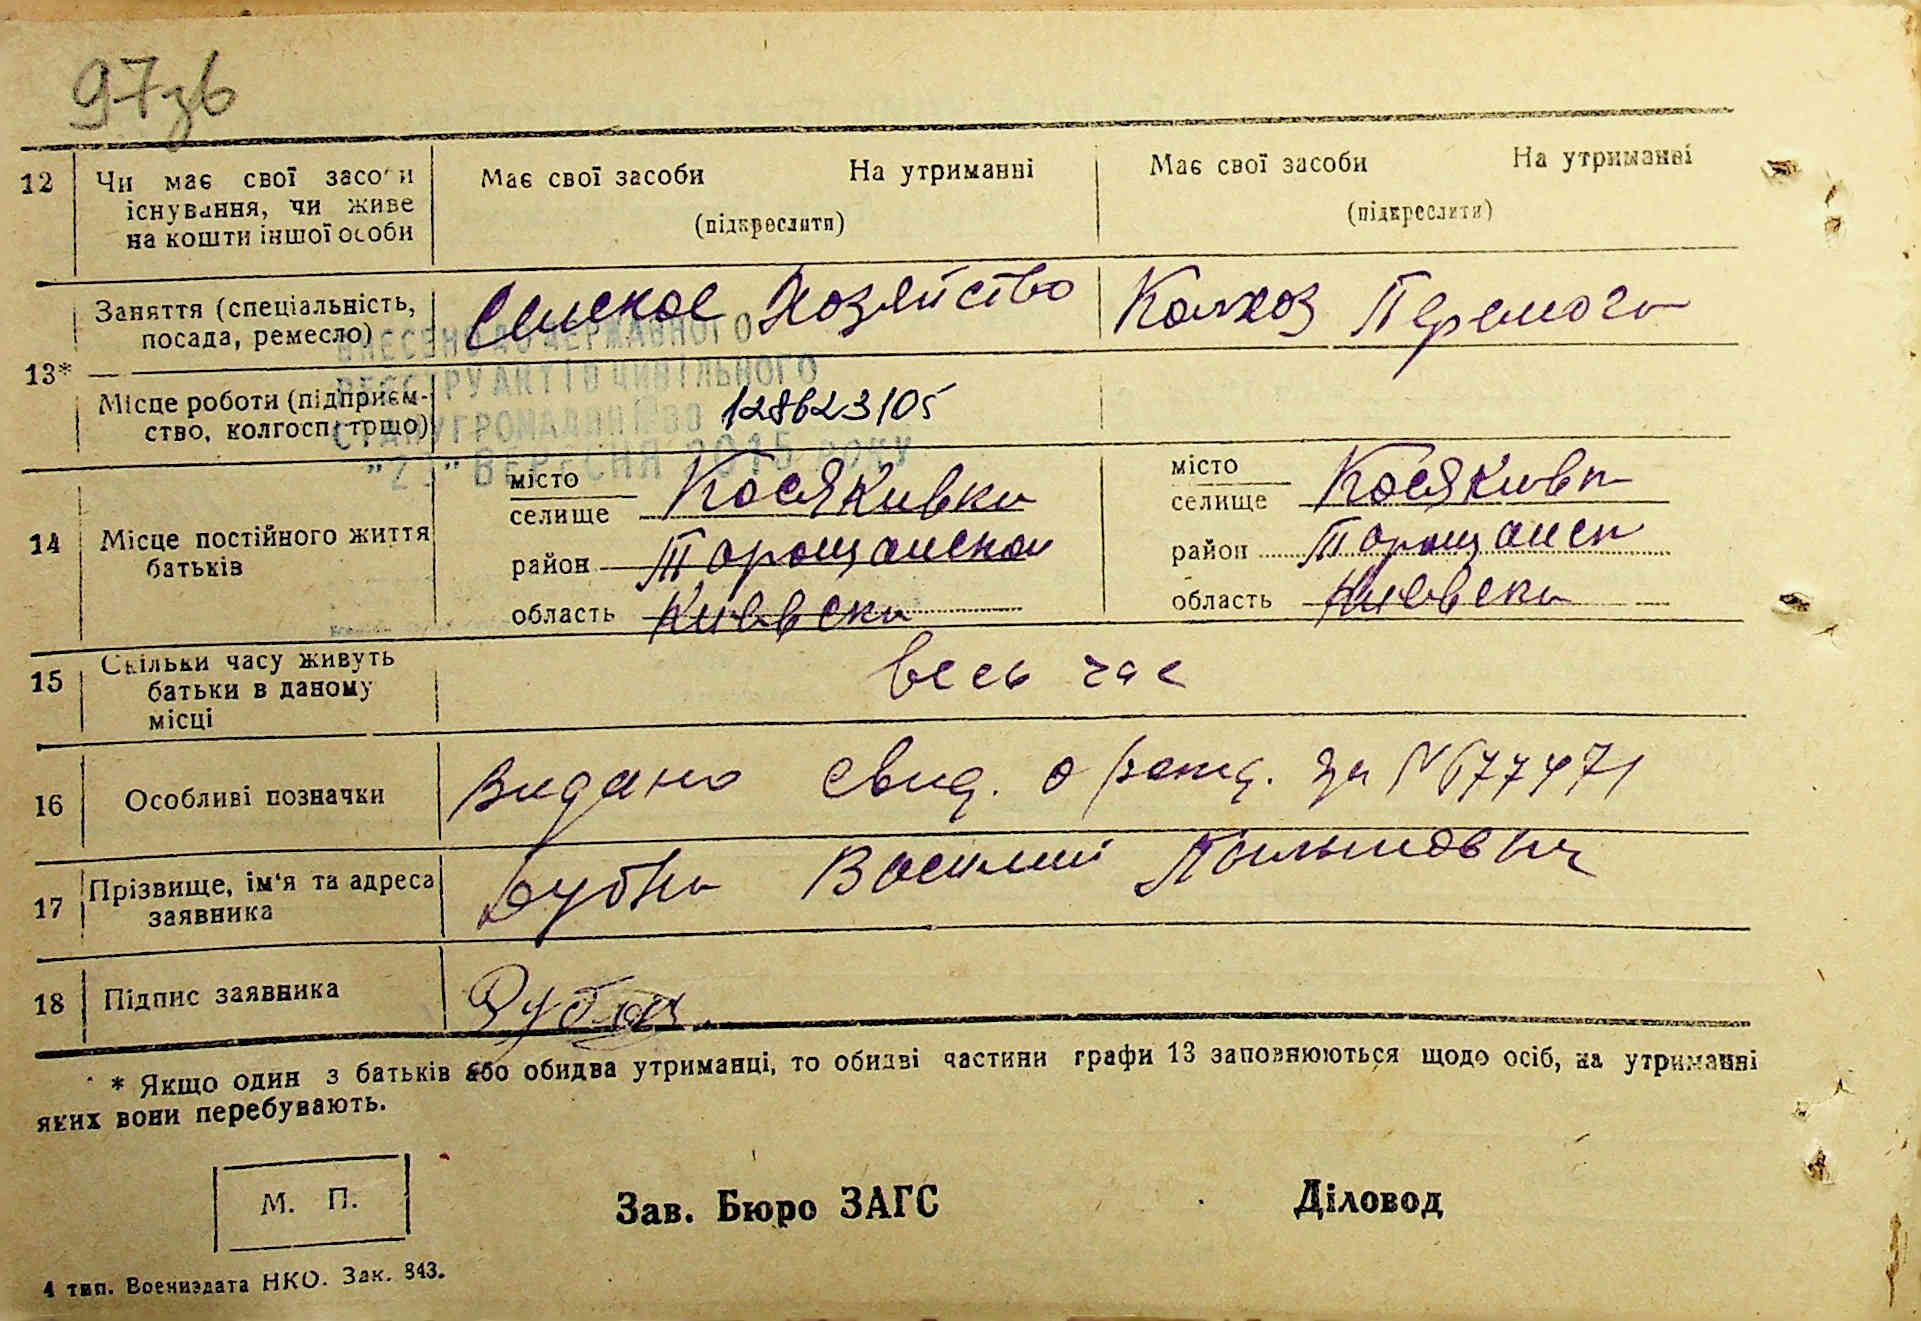 97зв
12 Чи має свої засоби існування, чи живе на кошти іншої особи
Має свої засоби На утриманні
(підкреслити)
Має свої засоби На утриманні
(підкреслити)
13*
Заняття (спеціальність, посада, ремесло)
Селское Хозяйство
Колхоз Перемога
ВНЕСЕНО ДО ДЕРЖАВНОГО
РЕЄСТРУ АКТІВ ЦИВІЛЬНОГО
СТАНУ ГРОМАДЯН ПО
ВЕРЕСНЯ 2015 РОКУ
Місце роботи (підприєм-
ство, колгосп, тощо)
128623105
14 Місце постійного життя батьків
місто
селище Косякивка
район Таращанска
область Киевска
місто
селище Косякивка
район Таращанск
область Киевска
15 Скільки часу живуть
батьки в даному
місці
весь час
16 Особливі позначки
Видано свид. о рожд. за № 677471
17 Прізвище, ім‘я та адреса
заявника
Дубна Василий
18 Підпис заявника
* Якщо один з батьків або обидва утриманці, то обидві частини графи 13 заповнюються щодо осіб, на утриманні
яких вони перебувають.
М. П.
Зав. Бюро ЗАГС
Діловод
4 тип. Воениздата НКО. Зак. 843.